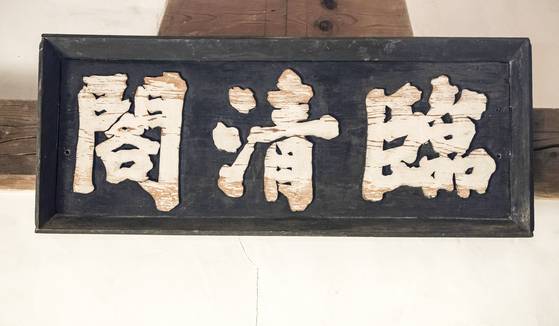 臨清閣